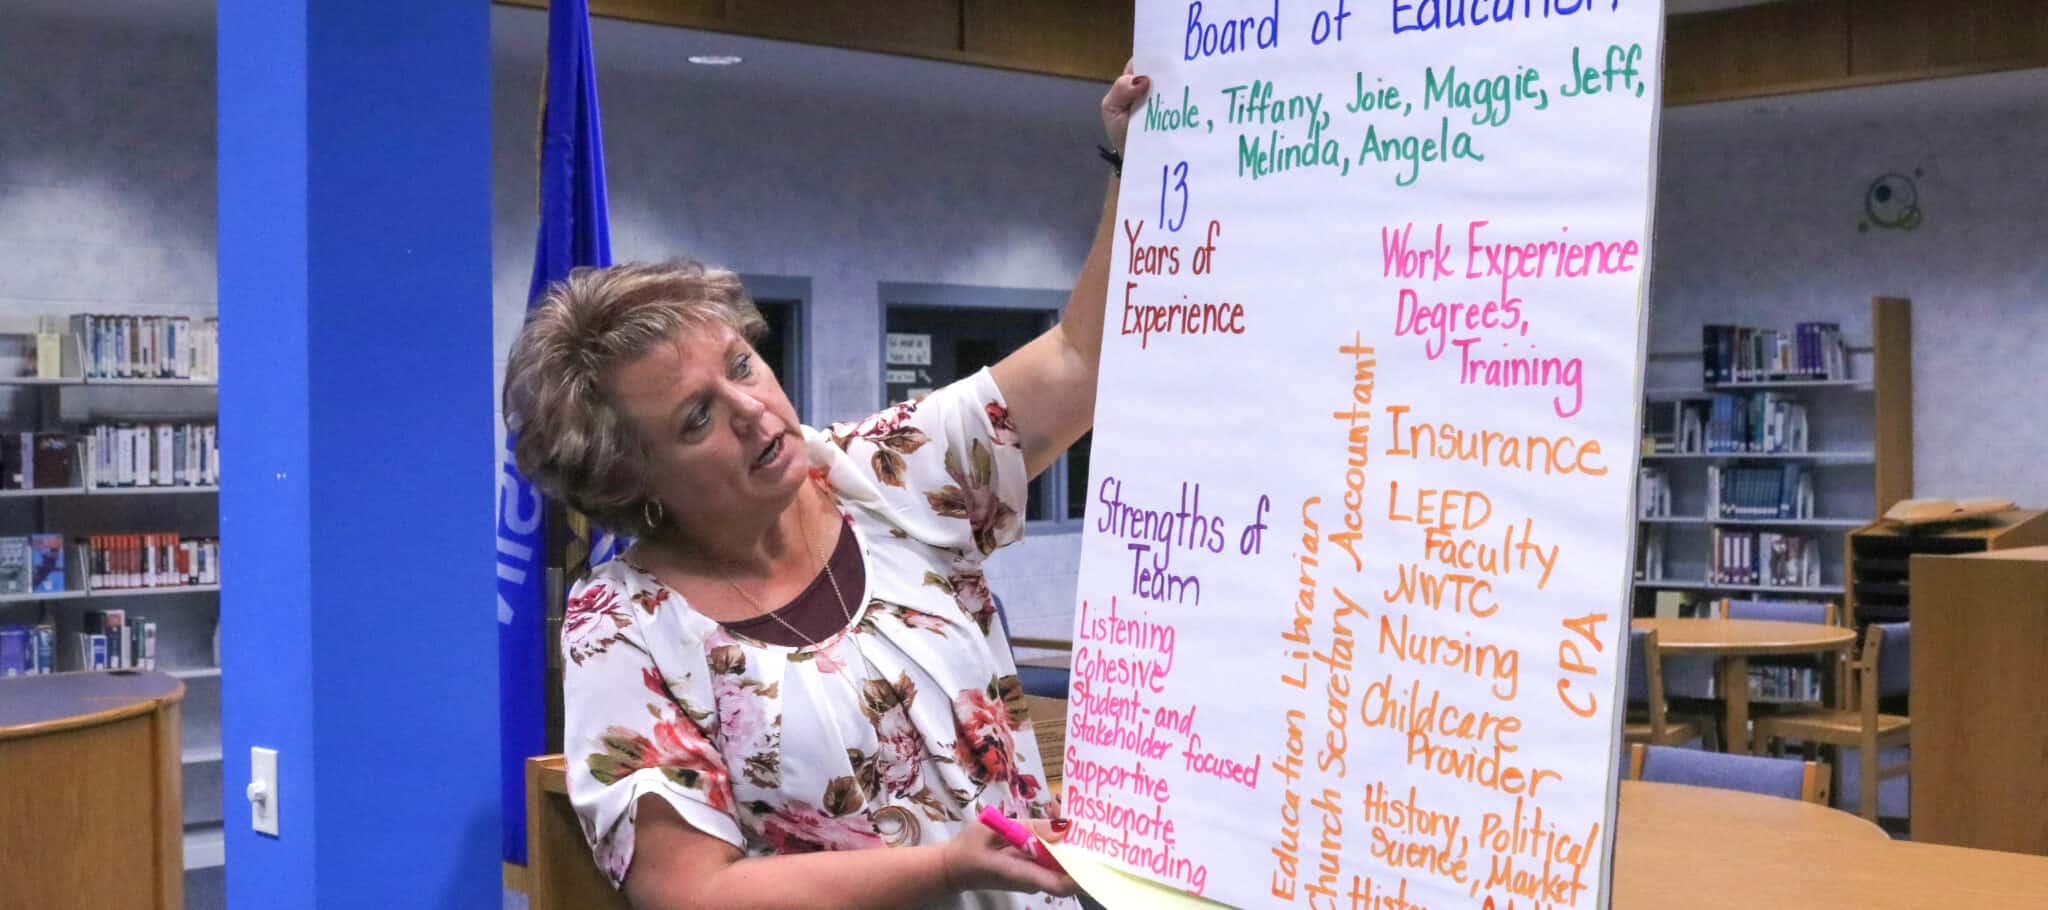 Board of Education
Nicole, Tiffany, Joie, Maggie, Jeff,
Melinda, Angela
13
Years of
Experience
Work Experience
Degrees,
Training
Strengths of
Team
Listening
Cohesive
Student-and
Stakeholder focused
Supportive
Passionate
Understanding
Education Librarian
Church Secretary Accountant
Insurance
LEED
Faculty
NWTC
Nursing
CPA
Childcare
Provider
History, Political
Science, Market